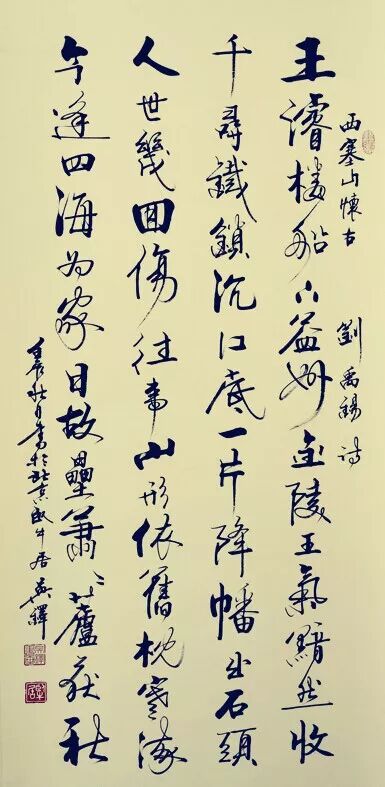 西塞山懷古 劉禹錫詩
王濬樓船下益州金陵王氣黯然收
千尋鐵鎖沉江底一片降幡出石頭
人世幾回傷往事山形依舊枕寒流
今逢四海为家日故壘蕭蕭蘆荻秋
壬辰秋月書於北京